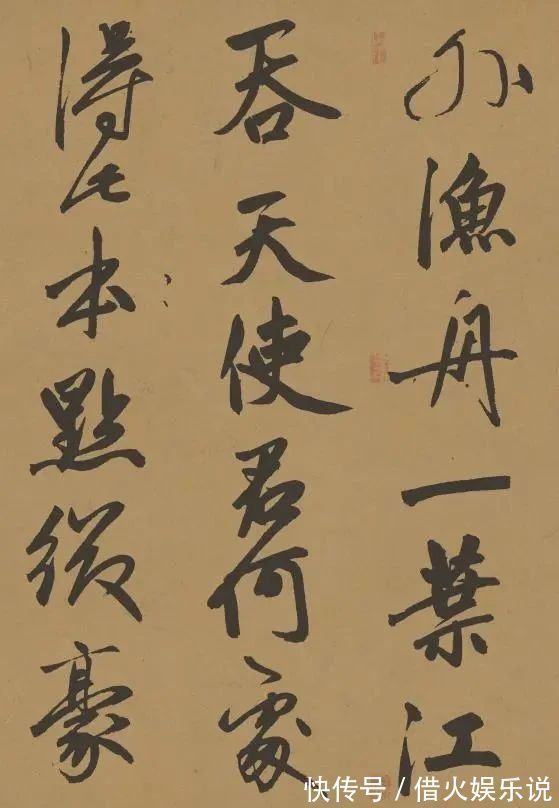 外漁舟一葉江
吞天使君何處
得此本點綴豪
快传号 / 借火娱乐说